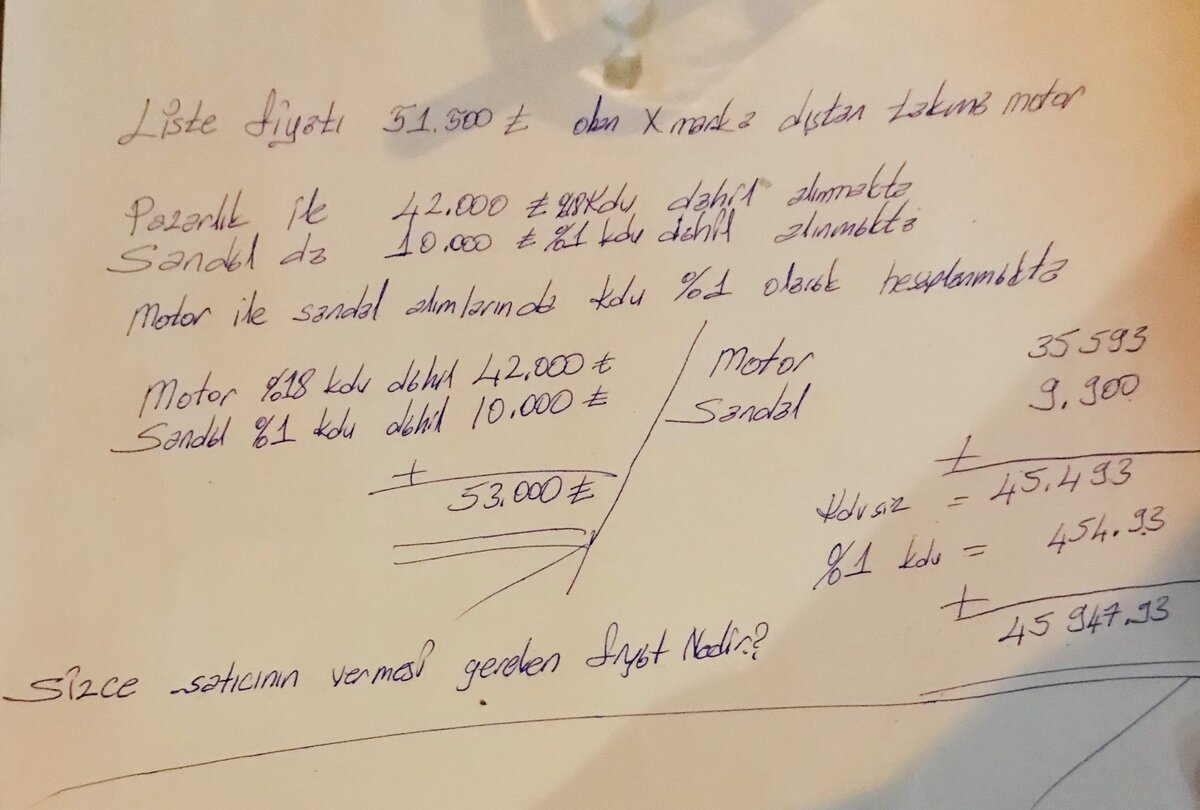 Liste fiyatı 51.500 ₺ olan X marka dıştan takma motor
Pazarlık ile 42.000 ₺ %18 kdv dahil alınmakta
Sandal da 10.000 ₺ %1 kdv dahil alınmakta
Motor ile sandal alımlarında kdv %1 olarak hesaplanmakta
Motor %18 kdv dahil 42.000 ₺
Sandal %1 kdv dahil 10.000 ₺
+
53.000 ₺
Motor 35593
Sandal 9.900
+
Kdvsiz = 45.493
%1 kdv = 454.93
+
45 947.93
Sizce satıcının vermesi gereken fiyat Nedir?